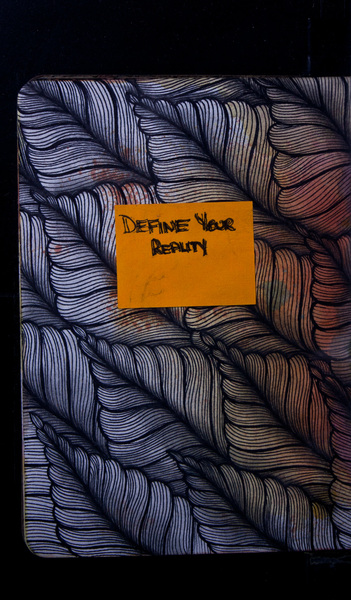 DEFINE YOUR
REALITY